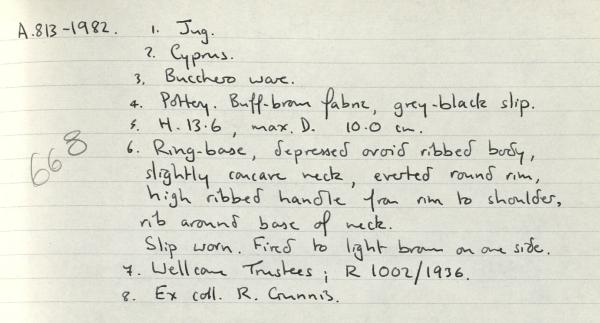 A.813-1982. 1. Jug.
2. Cyprus.
3. Bucchero ware.
4. Pottery. Buff-brown fabric, grey-black slip.
5. H. 13.6, max. D. 10.0 cm.
6. Ring-base, depressed ovoid ribbed body,
668
slightly concave neck, everted round rim,
high ribbed handle from rim to shoulder,
rib around base of neck.
Slip worn. Fired to light brown on one side.
7. Wellcome Trustees; R 1002/1936.
8. Ex coll. R. Gunnis.